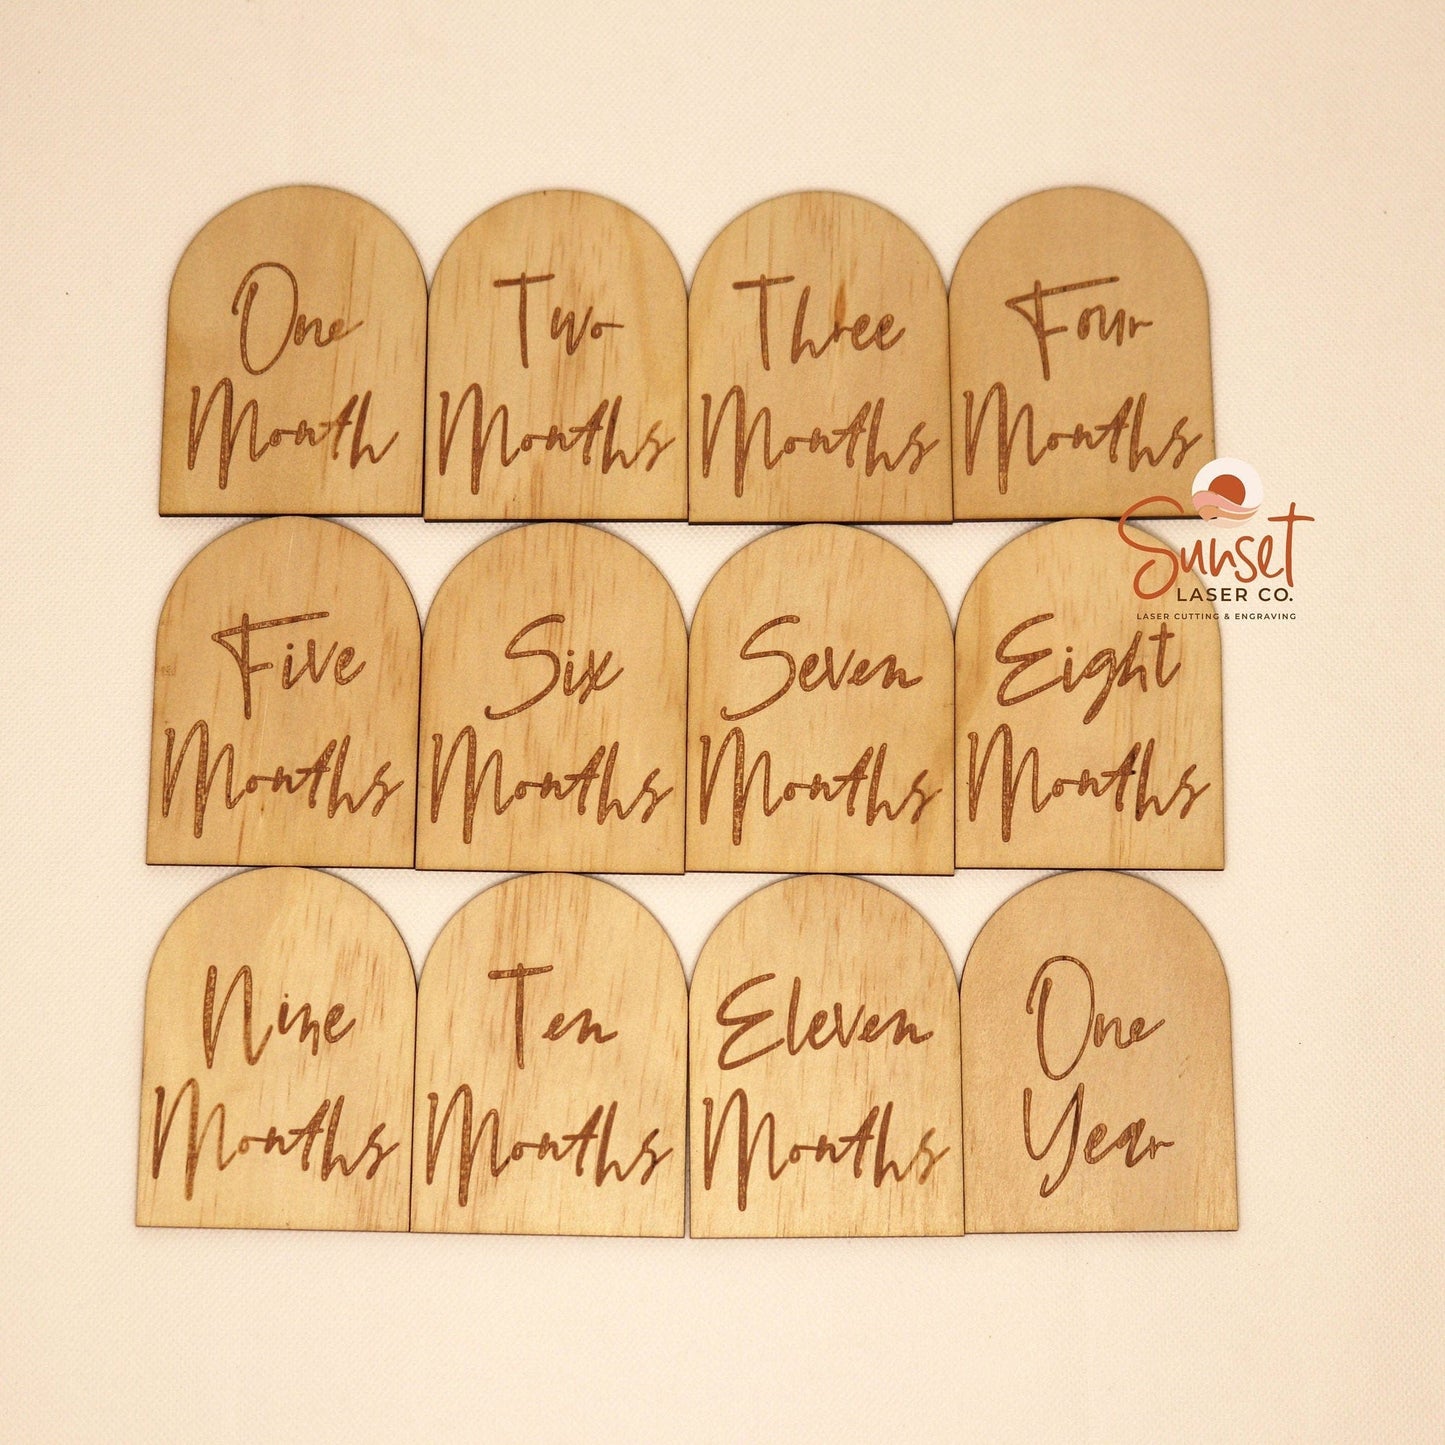 One
Month
Two
Months
Three
Months
Four
Months
Sunset
LASER CO.
LASER CUTTING & ENGRAVING
Five
Months
Six
Months
Seven
Months
Eight
Months
Nine
Months
Ten
Months
Eleven
Months
One
Year